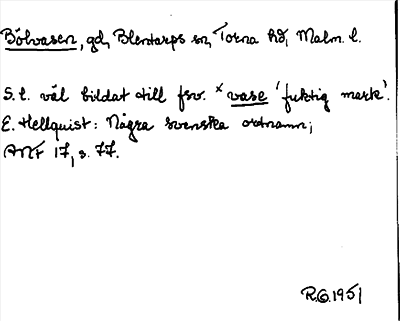 Bölvasen, gd, Blentarps sn, Torna hd, Malm. l.
S. l. väl bildat till fsv. ˣvase 'fuktig mark'.
E. Hellquist: Några svenska ortnamn;
ANF 17, s. 77.
R.G.1951